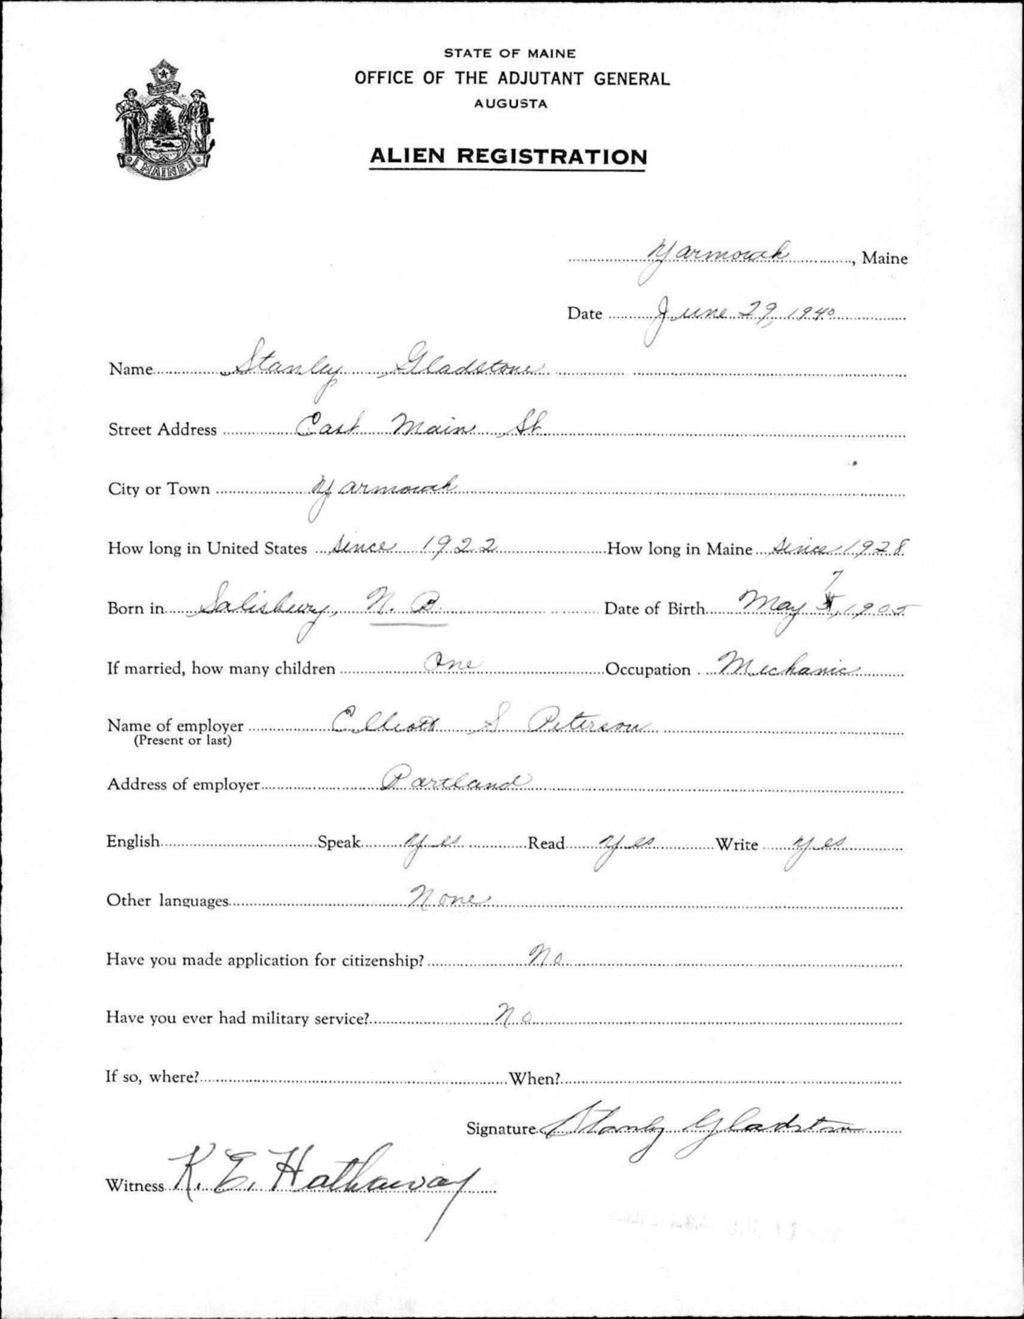 STATE OF MAINE
OFFICE OF THE ADJUTANT GENERAL
AUGUSTA
ALIEN REGISTRATION
MAINE
Yarmouth, Maine
Date June 29, 1940
Name Stanley Gladstone
Street Address East Main St
City or Town Yarmouth
How long in United States since 1922 How long in Maine since 1928
Born in Salisbury, N. B. Date of Birth May 7, 1905
If married, how many children One Occupation Mechanic
Name of employer Elliott S Peterson
(Present or last)
Address of employer Portland
English Speak yes Read yes Write yes
Other languages None
Have you made application for citizenship? No
Have you ever had military service? No
If so, where? When?
Signature Stanley Gladstone
Witness K. E. Hathaway